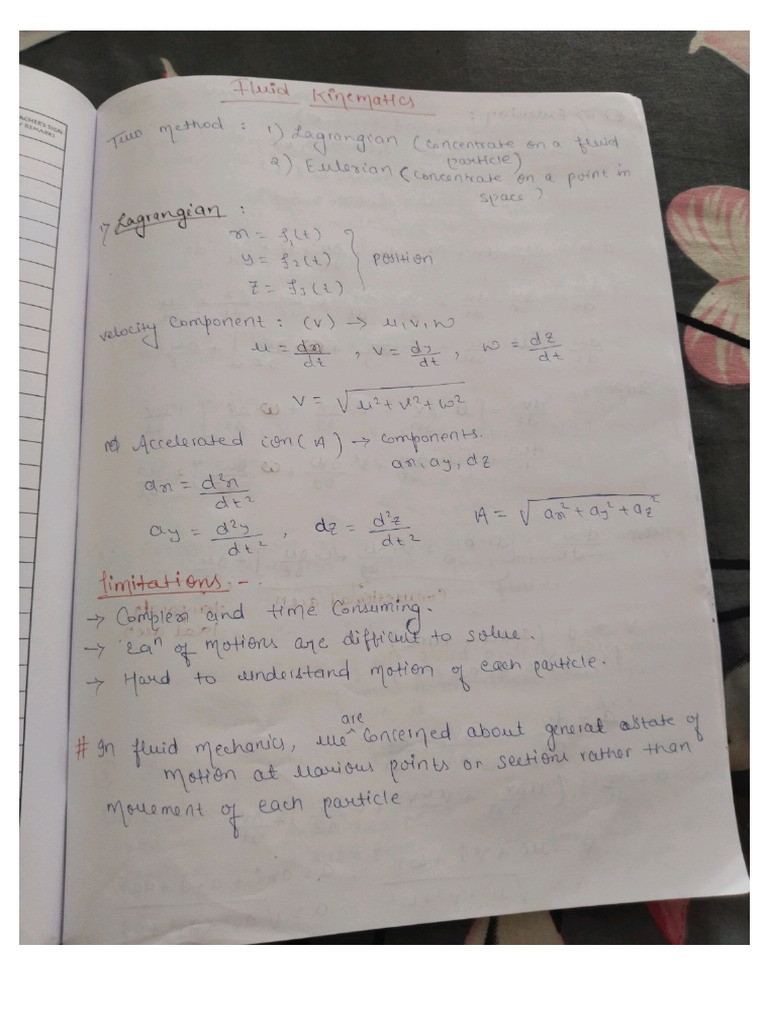 TEACHER'S SIGN
REMARK
Fluid Kinematics
Two method : 1) Lagrangian (concentrate on a fluid
particle)
2) Eulerian (concentrate on a point in
space)
1) Lagrangian :
x = f₁(t)
y = f₂(t) } position
z = f₃(t)
velocity component : (V) → u, v, w
u = dx/dt , v = dy/dt , w = dz/dt
V = √(u² + v² + w²)
Accelerated ion (A) → components.
ax, ay, dz
ax = d²x/dt²
ay = d²y/dt² , dz = d²z/dt² A = √(ax² + ay² + az²)
limitations :-
→ Complex and time Consuming.
→ Eqⁿ of motions are difficult to solve.
→ Hard to understand motion of each particle.
# In fluid mechanics, we are concerned about general state of
motion at various points or sections rather than
movement of each particle